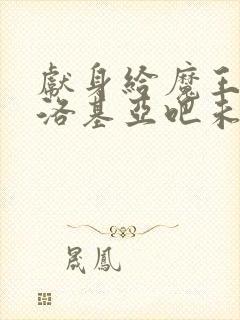 獻身給魔王
洛基亞吧未
晟鳳